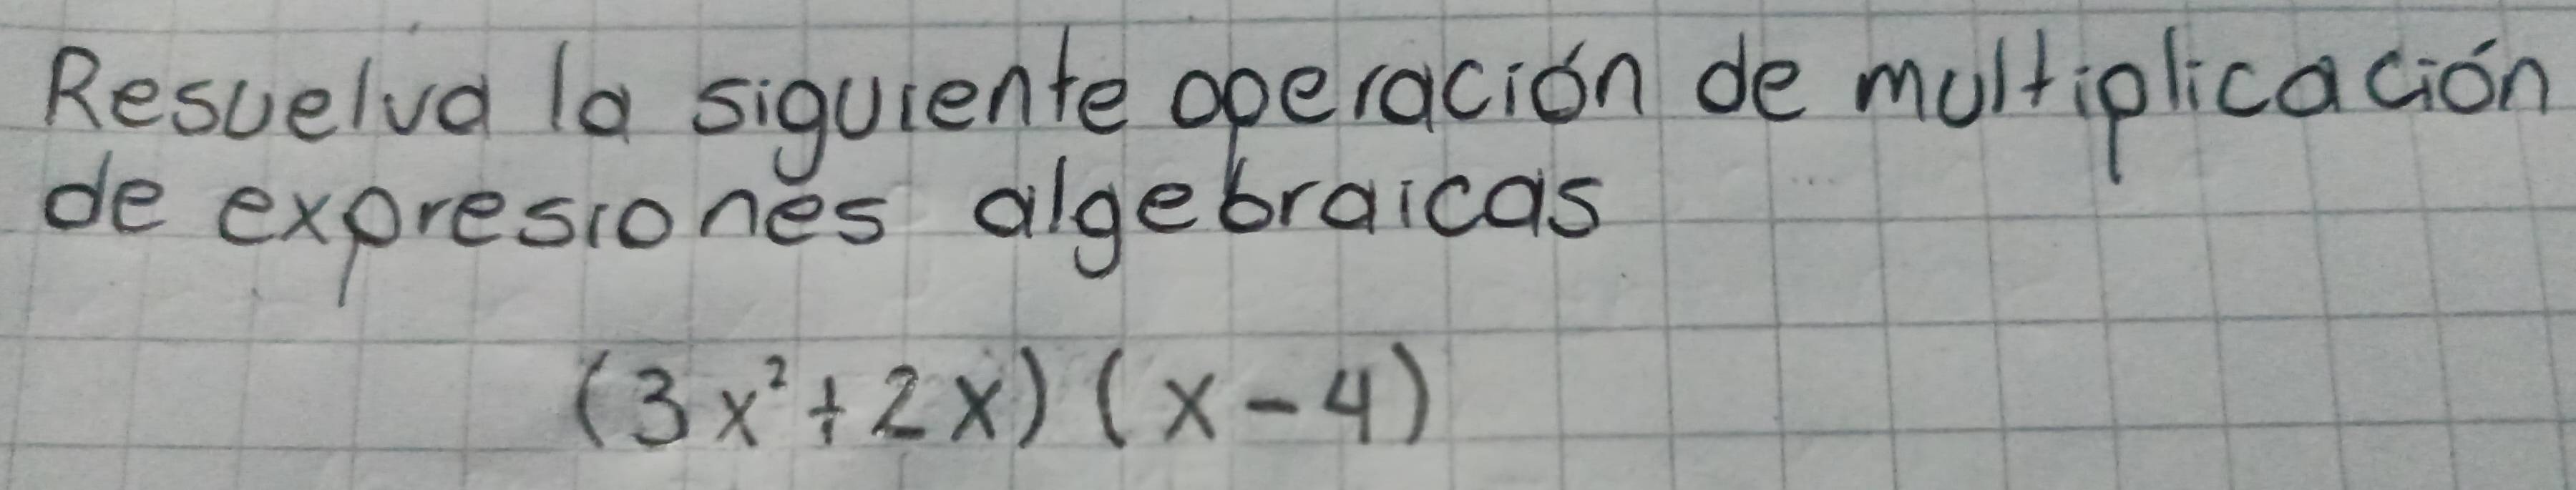 Resuelva la siguiente operación de multiplicación
de expresiones algebraicas
(3x²+2x)(x-4)